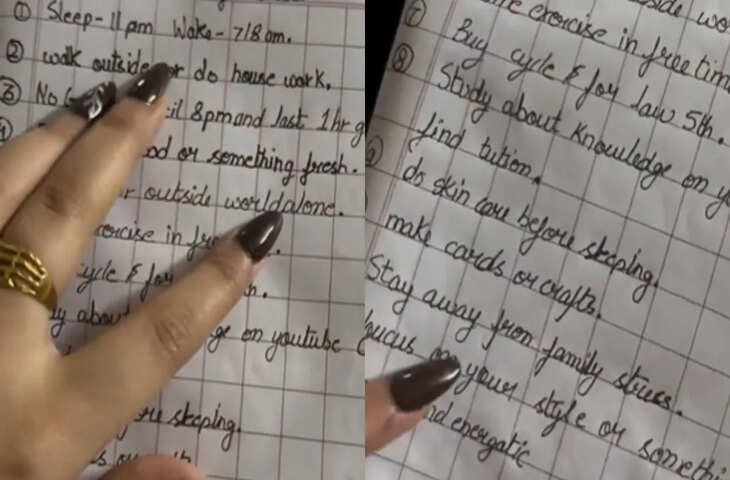 ① Sleep-11pm Wake- 7/8am.
② walk outside or do house work.
③ No
il 8pm and last 1hr g
od or something fresh.
r outside world alone.
ercise in fre
cycle & for h.
y about ge on youtube
re skeeping.
side wo
exercise in free tim
⑦ Buy cycle & for law 5th.
⑧ Study about Knowledge on y
find tution.
do skin care before skeeping.
make cards or crafts.
Stay away from family stress.
on your style or somethi
nd energatic